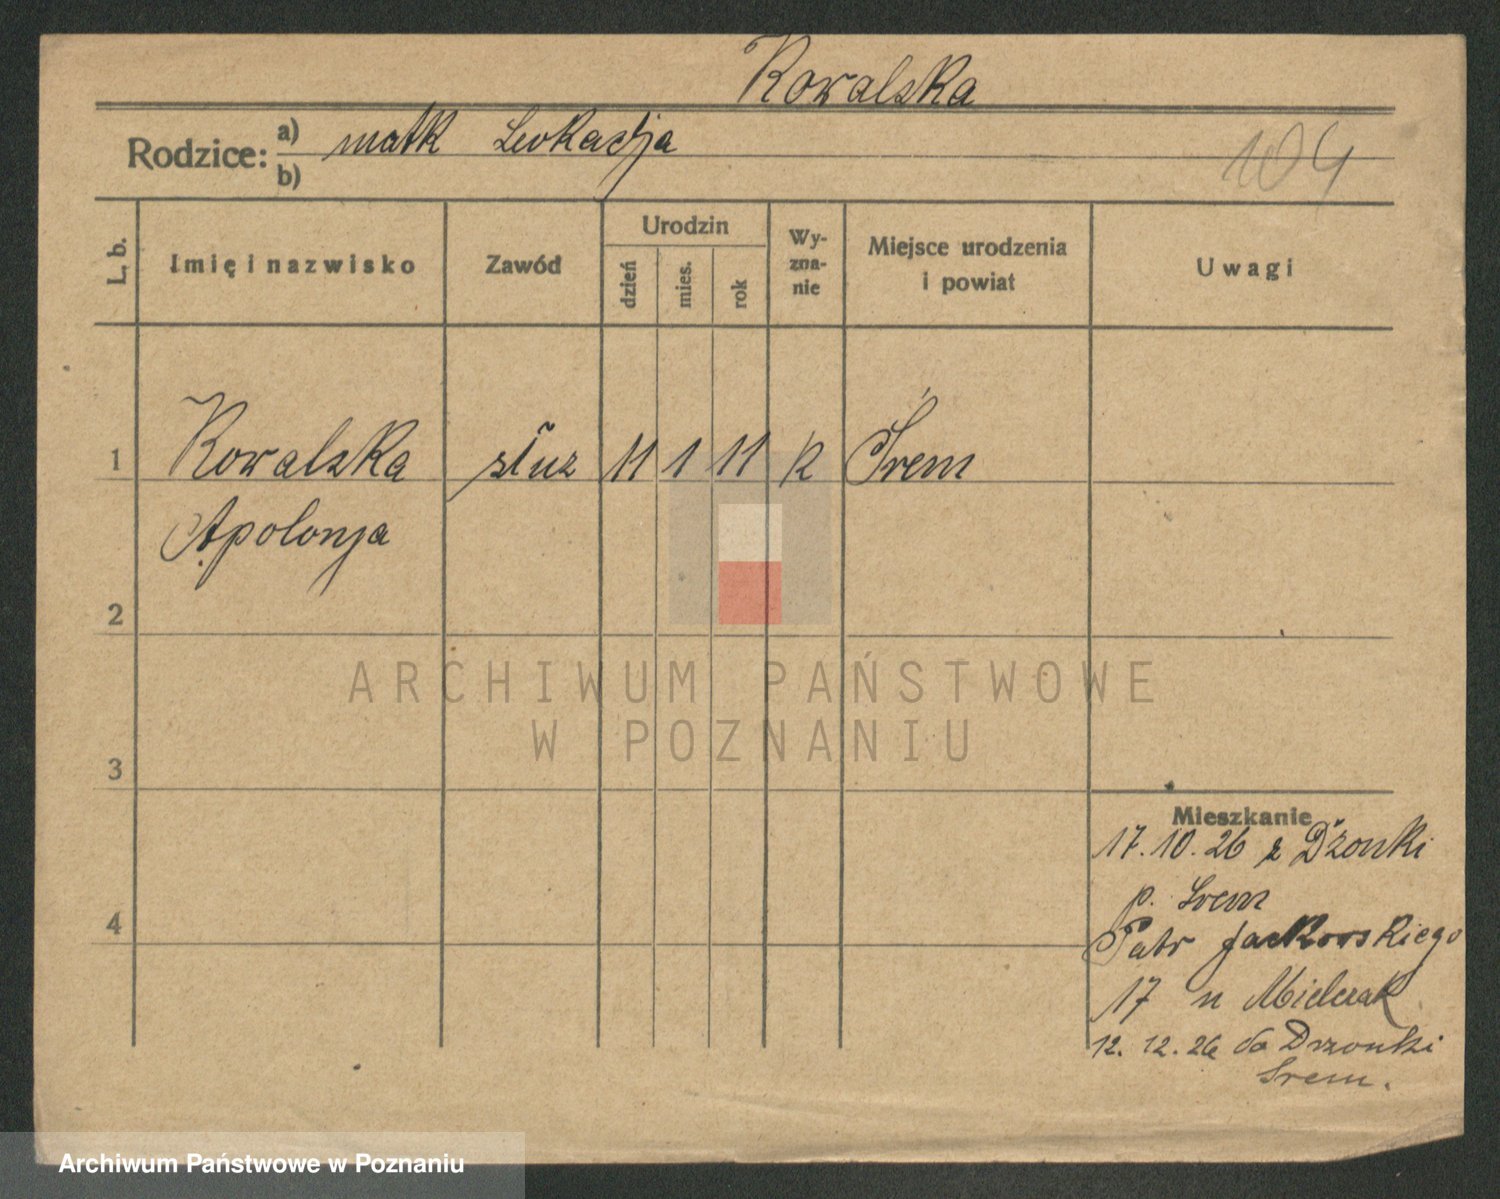 Kowalska
Rodzice: a) matk Leokadja
b)
104
L. b. Imię i nazwisko Zawód Urodzin dzień mies. rok Wy-zna-nie Miejsce urodzenia i powiat Uwagi
1 Kowalska służ 11 1 11 k Śrem
Apolonja
2
ARCHIWUM PAŃSTWOWE
W POZNANIU
3
Mieszkanie
17.10.26 z Dżonki
p. Śrem
4
Patr Jackowskiego
17 u Mielcrak
12.12.26 do Drzonki
Srem.
Archiwum Państwowe w Poznaniu